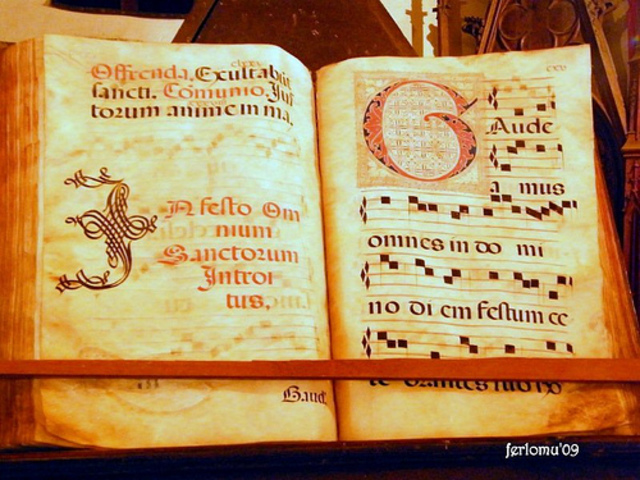 Offrenda. Exultabūt
sancti. Comunio. Jus
torum anime in ma.
In festo Om
nium
Sanctorum
Introi
tus.
Gaud.
GAude
a mus
omnes in do mi
no di em festum ce
le brantes sub
ferlomu'09